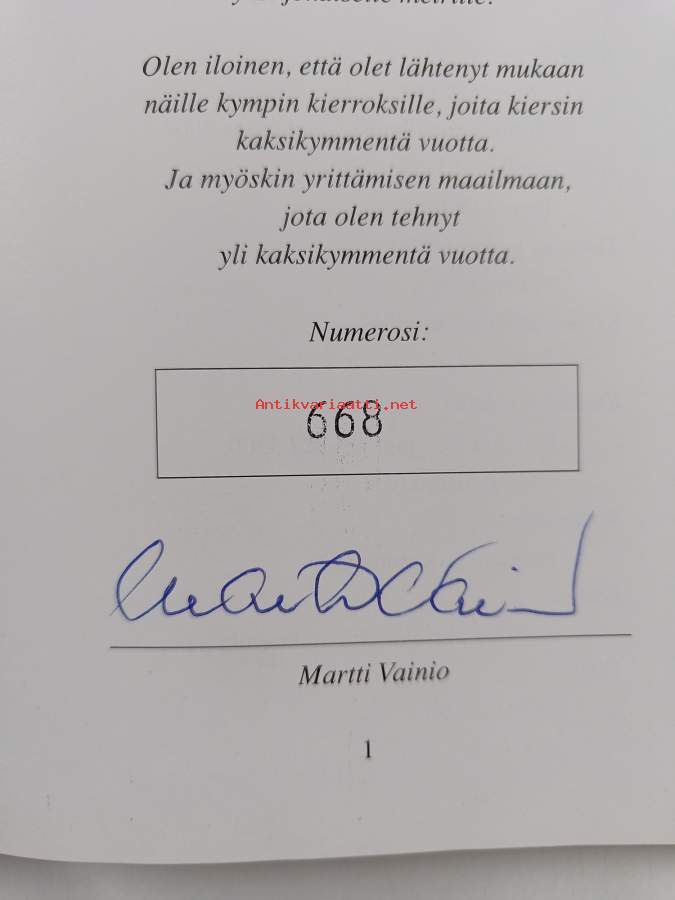 Olen iloinen, että olet lähtenyt mukaan
näille kympin kierroksille, joita kiersin
kaksikymmentä vuotta.
Ja myöskin yrittämisen maailmaan,
jota olen tehnyt
yli kaksikymmentä vuotta.
Numerosi:
Antikvariaatti.net
668
Martti Vainio
Martti Vainio
1